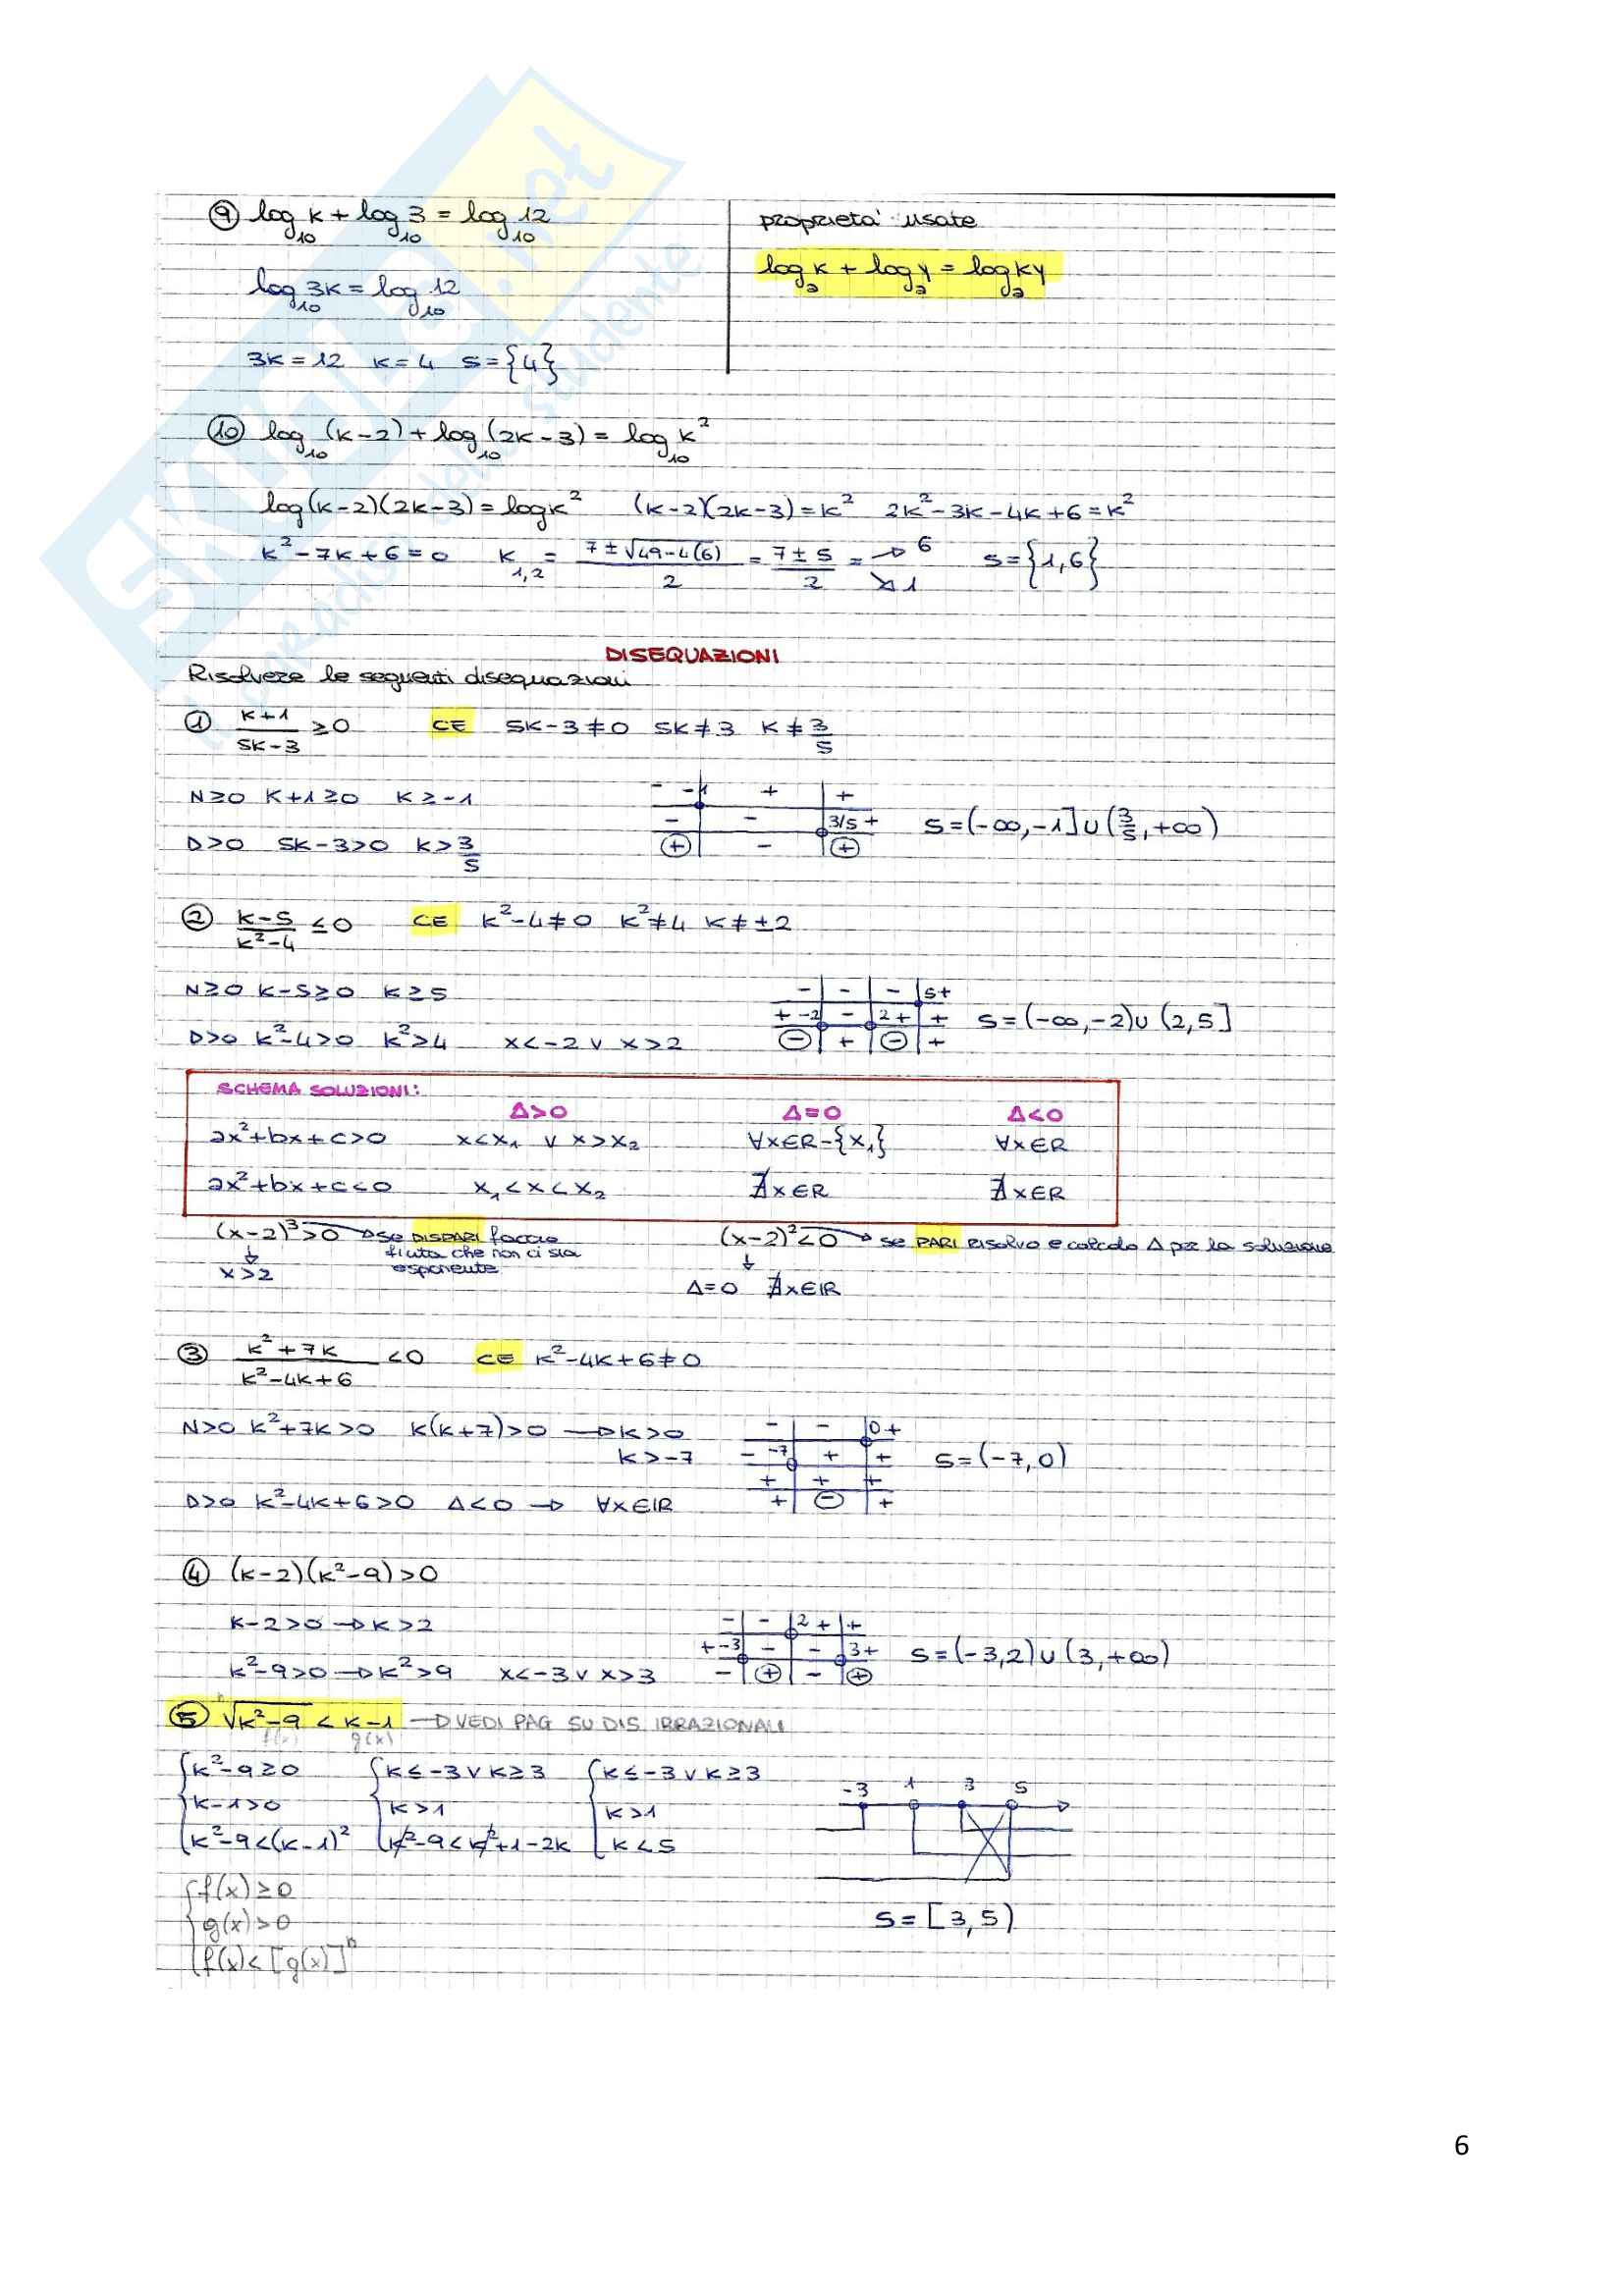 ⑨ log₁₀ K + log₁₀ 3 = log₁₀ 12
proprietà usate
log₁₀ 3K = log₁₀ 12
logₐ K + logₐ y = logₐ Ky
3K = 12 K = 4 S = {4}
⑩ log₁₀ (K-2) + log₁₀ (2K-3) = log₁₀ K²
log(K-2)(2K-3) = log K² (K-2)(2K-3) = K² 2K²-3K-4K+6 = K²
K²-7K+6=0 K₁,₂ = (7±√49-4(6))/2 = (7±5)/2 = → 6 ↘ 1 S = {1,6}
DISEQUAZIONI
Risolvere le seguenti disequazioni
① (K+1)/(5K-3) ≥0 CE 5K-3≠0 5K≠3 K≠3/5
N≥0 K+1≥0 K≥-1
- -1 + +
- - 3/5 +
+ - +
S=(-∞,-1]∪(3/5,+∞)
D>0 5K-3>0 K>3/5
② (K-5)/(K²-4) ≤0 CE K²-4≠0 K²≠4 K≠±2
N≥0 K-5≥0 K≥5
- - - 5+
+ -2 - 2+ +
- + - +
S=(-∞,-2)∪(2,5]
D>0 K²-4>0 K²>4 x<-2 ∨ x>2
SCHEMA SOLUZIONI:
Δ>0 Δ=0 Δ<0
ax²+bx+c>0 x<x₁ ∨ x>x₂ ∀x∈R-{x₁} ∀x∈R
ax²+bx+c<0 x₁<x<x₂ ∄x∈R ∄x∈R
(x-2)³>0 → se DISPARI faccio
finta che non ci sia
esponente
↓
x>2
(x-2)²<0 → se PARI risolvo e calcolo Δ per la soluzione
↓
Δ=0 ∄x∈IR
③ (K²+7K)/(K²-4K+6) <0 CE K²-4K+6≠0
N>0 K²+7K>0 K(K+7)>0 → K>0
K>-7
- - 0+
- -7 + +
+ + +
+ - +
S=(-7,0)
D>0 K²-4K+6>0 Δ<0 → ∀x∈IR
④ (K-2)(K²-9)>0
K-2>0 → K>2
- - 2+ +
+ -3 - - 3+
- + - +
S=(-3,2)∪(3,+∞)
K²-9>0 → K²>9 x<-3 ∨ x>3
⑤ ⁿ√K²-9 < K-1 → VEDI PAG SU DIS. IRRAZIONALI
f(x) g(x)
{K²-9≥0 {K≤-3∨K≥3 {K≤-3∨K≥3
K-1>0 K>1 K>1
K²-9<(K-1)² K²-9<K²+1-2K K<5
-3 1 3 5
{f(x)≥0
g(x)>0
f(x)<[g(x)]ⁿ
S=[3,5)
6
SKUOLA.net